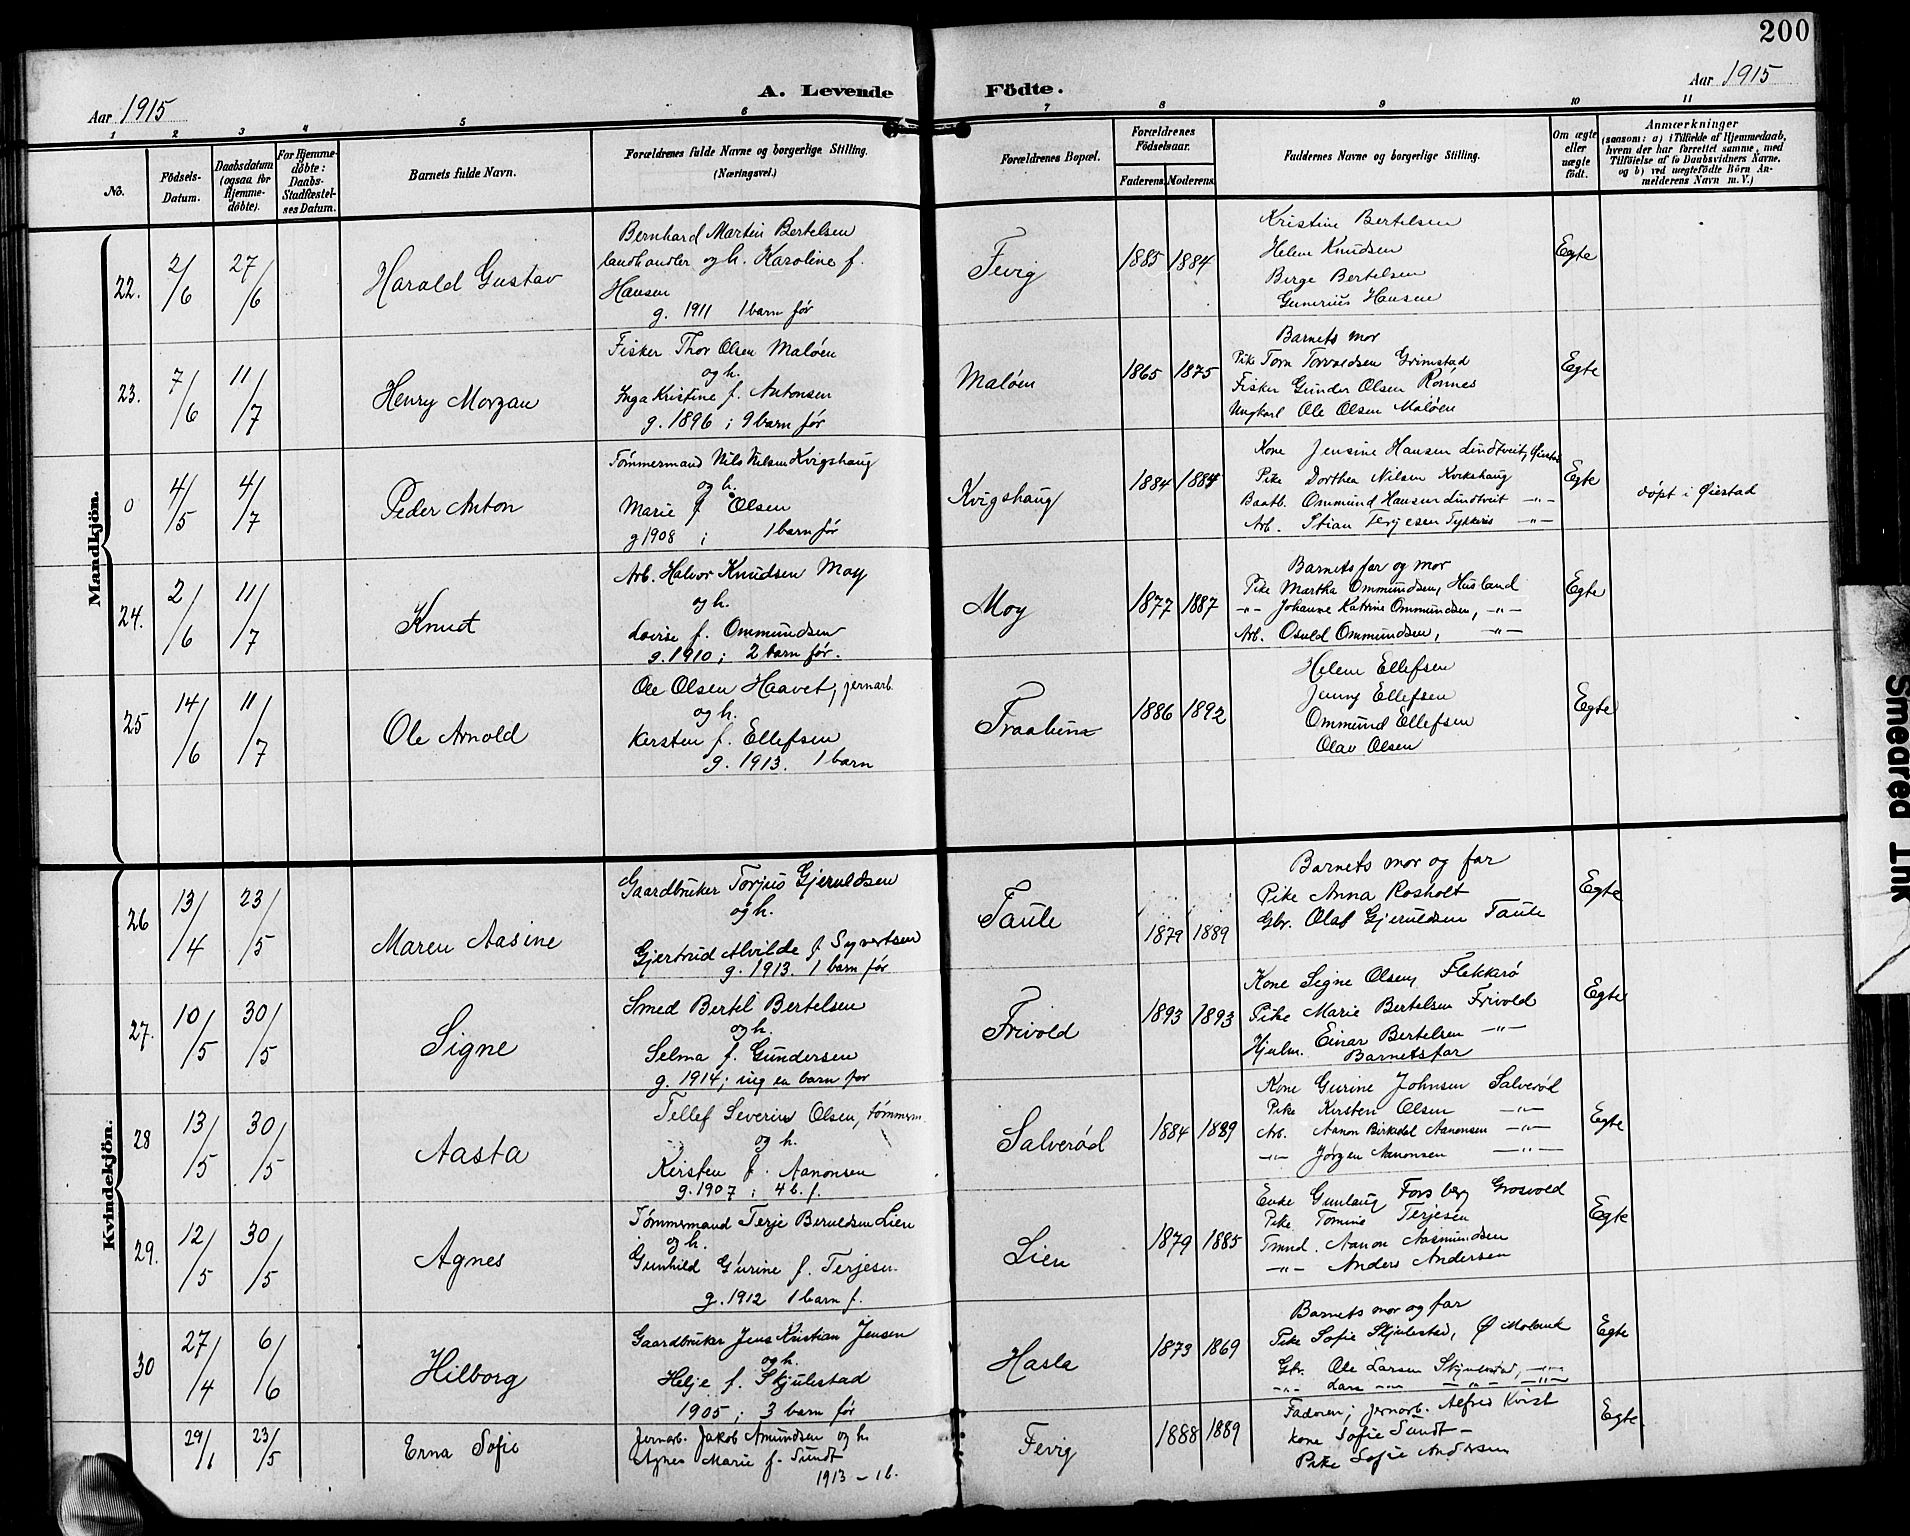 200
Aar 1915
A. Levende Födte.
Aar 1915
1 2 3 4 5 6 7 8 9 10 11
No.
Födsels-Datum.
Daabsdatum (ogsaa for Hjemme-döbte).
For Hjemme-döbte: Daabs-Stadfæstel-ses Datum.
Barnets fulde Navn.
Forældrenes fulde Navne og borgerlige Stilling.
(Næringsvei.)
Forældrenes Bopæl.
Forældrenes Födselsaar.
Faderens. Moderens.
Faddernes Navne og borgerlige Stilling.
Om ægte eller uægte födt.
Anmærkninger
(saasom: a) i Tilfælde af Hjemmedaab,
hvem der har forrettet samme, med
Tilföielse af to Daabsvidners Navne.
og b) ved uægtefödte Börn An-
melderens Navn m. V.)
Mandkjön.
22. 2/6 27/6 Harald Gustav
Bernhard Martin Bertelsen
landhandler og h. Karoline f.
Hansen
g. 1911 1 barn før
Fevig 1885 1884
Kristine Bertelsen
Helene Knudsen
Berge Bertelsen
Gunerius Hansen
Egte
23. 7/6 11/7 Henry Morgan
Fisker Thor Olsen Maløen
og h.
Inga Kristine f. Antonsen
g. 1896 ; 9 barn før
Maløen 1865 1875
Barnets mor
Pike Tora Torvaldsen Grimstad
Fisker Gunder Olsen Rønnes
Ungkarl Ole Olsen Maløen
Egte
0 4/5 4/7 Peder Anton
Tømmermand Nils Nilsen Kvigshaug
og h.
Marie f. Olsen
g 1908 ; 1 barn før
Kvigshaug 1884 1884
Kone Jensine Hansen Lindtveit, Øiestad
Pike Dorthea Nilsen Kvikshaug
Baatb. Ommund Hansen Lindtveit -"-
Arb. Stian Terjesen -"-
Egte
døpt i Øiestad
24. 2/6 11/7 Knut
Arb. Halvor Knudsen Moy
og h.
Lovise f. Ommundsen
g. 1910 ; 2 barn før.
Moy 1877 1887
Barnets far og mor
Pike Martha Ommundsen, Husland
-"- Johanne Katrine Ommundsen, -"-
Arb. Osuld Ommundsen, -"-
Egte
25 14/6 11/7 Ole Arnold
Ole Olsen Haavet, jernarb.
og h.
Kersten f. Ellefsen
g. 1913. 1 barn
1886 1892
Helene Ellefsen
Jenny Ellefsen
Ommund Ellefsen
Olav Olsen
Egte
Kvindekjön.
26 13/4 23/5 Maren Aasine
Gaardbruker Torjus Gjeruldsen
og h.
Gjertrud Alvilde f. Syvertsen
g. 1913. 1 barn før
Taule 1879 1889
Barnets mor og far
Pike Anna Rosholt
Gbr. Olaf Gjeruldsen Taule
Egte
27. 10/5 30/5 Signe
Smed Bertel Bertelsen
og h.
Selma f. Gundersen
g. 1914; ing en barn før
Frivold 1893 1893
Kone Signe Olsen, Flekkerø
Pike Marie Bertelsen Frivold
Hjulm. Einar Bertelsen -"-
Barnets far
Egte
28 13/5 30/5 Aasta
Tellef Severin Olsen, tømmerm.
og h.
Kirsten f. Aanonsen
g. 1907 ; 4 b. f.
Salverød 1884 1889
Kone Gurine Johnsen Salverød
Pike Kirsten Olsen -"-
Arb. Aanon Birkedal Aanonsen -"-
-"- Jørgen Aanonsen -"-
Egte
29. 12/5 30/5 Agnes
Tømmermand Terje Beruldsen Lien
og h.
Gunhild Gurine f. Terjesen
g. 1912 1 barn f.
Lien 1879 1885
Enke Gunlaug Forsberg Grosvold
Pike Tomine Terjesen
Tmnd. Aanon Aasmundsen
-"- Anders Andersen
Egte
30 27/4 6/6 Hilborg
Gaardbruker Jens Kristian Jensen
og h.
Helje f. Skjulestad
1905 ; 3 barn før
Hasla 1873 1869
Barnets mor og far
Pike Sofie Skjulestad, Ø Moland
Gbr. Ole Larsen Skjulestad, -"-
-"- Lars -"- -"- -"-
Egte
29/1 23/5 Erna Sofie
Jernarb. Jakob Amundsen og h.
Agnes Marie f. Sundt
1913 - 1 b.
Fevig 1888 1889
Fadoren ; jernarb. Alfred Kvist
Kone Sofie Sundt -
Pike Sofie Andersen
Egte
Smeared Ink